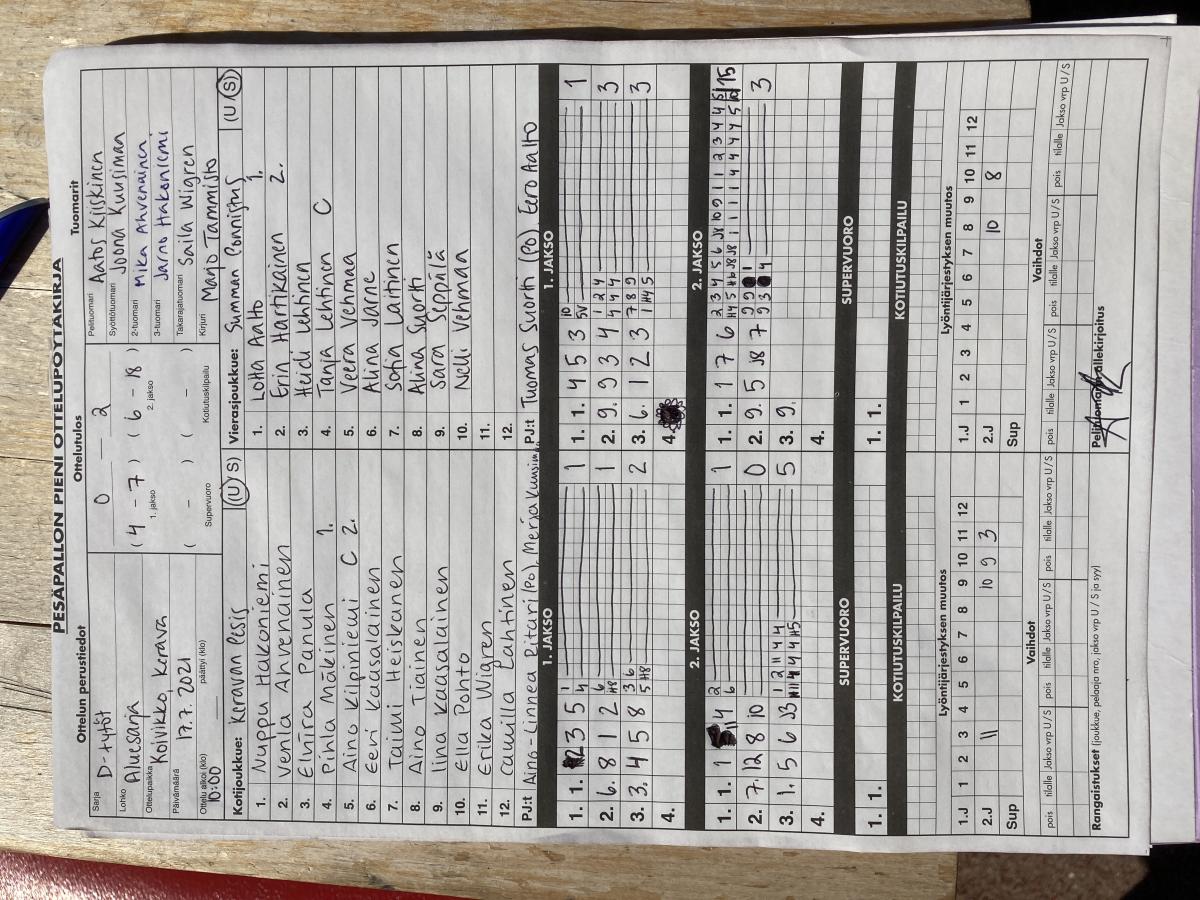 PESÄPALLON PIENI OTTELUPÖYTÄKIRJA
Ottelun perustiedot
Sarja D-tytöt
Lohko Aluesarja
Ottelupaikka Koivikko, Kerava
Päivämäärä 17.7.2021
Ottelu alkoi (klo) 10:00 päättyi (klo)
Ottelutulos
0 — 2
(4 - 7) (6 - 18)
1. jakso 2. jakso
( - ) ( - )
Supervuoro Kotiutuskilpailu
Tuomarit
Pelituomari Aatos Kiiskinen
Syöttötuomari Joona Kuusiman
2-tuomari Mika Ahvenainen
3-tuomari Jarno Hakoniemi
Takarajatuomari Saila Wigren
Kirjuri Marjo Tammisto
Kotijoukkue: Keravan Pesis (U/S)
1. Nuppu Hakoniemi
2. Venla Ahvenainen
3. Elviira Panula
4. Pihla Mäkinen 1.
5. Aino Kilpiniemi C 2.
6. Eeri Kaasalainen
7. Taimi Heiskanen
8. Aino Tiainen
9. Iina Kaasalainen
10. Ella Pohto
11. Erika Wigren
12. Camilla Lahtinen
PJ:t Aino-Linnea Pitari (PO), Merja Kuusiman
Vierasjoukkue: Summan Ponnistus (U/S)
1. Lotta Aalto 1.
2. Erin Hartikainen 2.
3. Heidi Lehtinen
4. Tanja Lehtinen C
5. Veera Vehmaa
6. Alina Jarne
7. Sofia Laitinen
8. Alina Suorti
9. Sara Seppälä
10. Nelli Vehman
11.
12.
PJ:t Tuomas Suorti (PO) Eero Aalto
1. JAKSO
1. 1. 2 3 5 1 4 1
2. 6. 8 1 2 6 H8 1
3. 3. 4 5 8 3 5 6 H8 2
4.
1. JAKSO
1. 1. 4 5 3 10 5V 1
2. 9. 9 3 4 1 4 2 4 4 4 3
3. 6. 1 2 3 7 1 8 H4 9 5 3
4.
2. JAKSO
1. 1. 1 11 4 2 6 1
2. 7. 12 8 10 0
3. 1. 5 6 J3 1 H11 2 4 11 4 4 4 4 H5 5
4.
2. JAKSO
1. 1. 1 7 6 2 3 4 5 6 J8 10 9 1 1 2 3 4 4 5 15
H4 5 H6 J8 1 1 1 1 4 4 4 4 5
2. 9. 5 J8 7 9 9 1 9 3 4 3
3. 9.
4.
SUPERVUORO
1. 1.
SUPERVUORO
1. 1.
KOTIUTUSKILPAILU
KOTIUTUSKILPAILU
Lyöntijärjestyksen muutos
1.J 1 2 3 4 5 6 7 8 9 10 11 12
2.J 11 10 9 3
Sup
Lyöntijärjestyksen muutos
1.J 1 2 3 4 5 6 7 8 9 10 11 12
2.J 10 8
Sup
Vaihdot
pois tilalle Jakso vrp U / S pois tilalle Jakso vrp U / S pois tilalle Jakso vrp U / S
Vaihdot
pois tilalle Jakso vrp U / S pois tilalle Jakso vrp U / S pois tilalle Jakso vrp U / S
Rangaistukset (joukkue, pelaaja nro, jakso vrp U / S ja syy)
Pelituomarin allekirjoitus